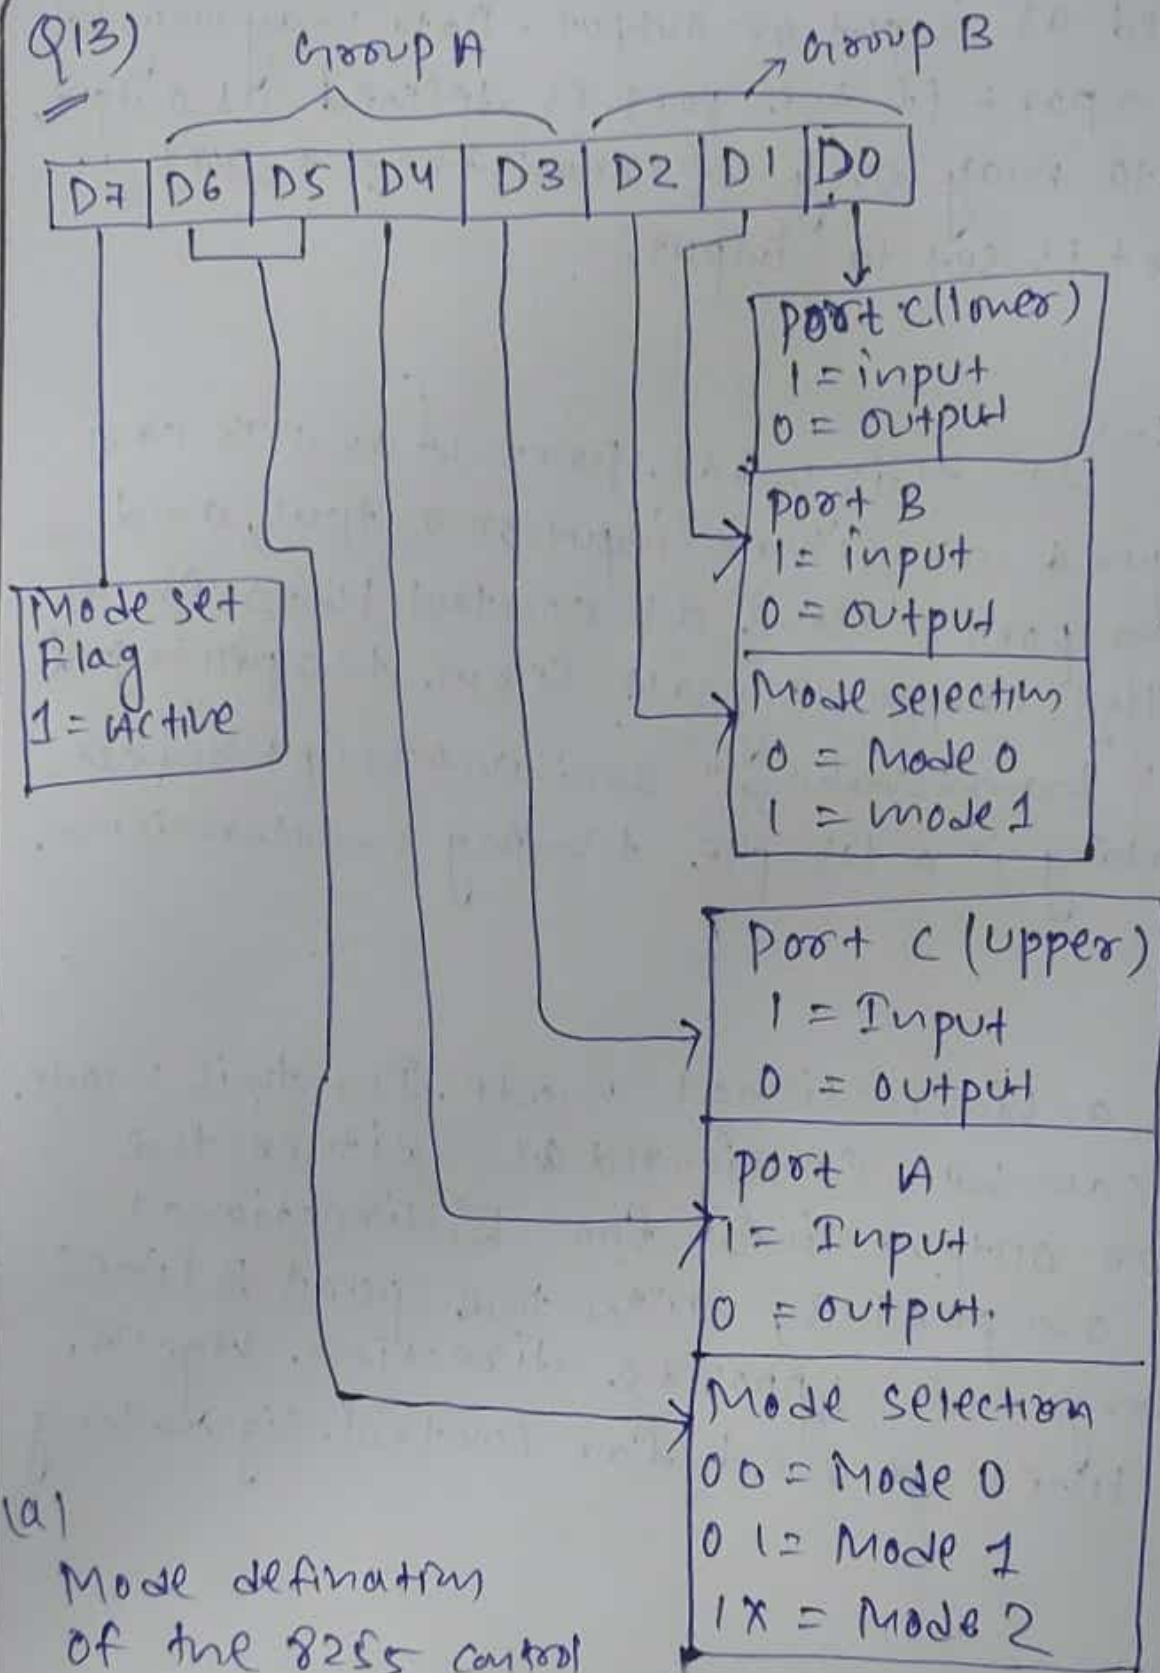 Q13)
Group A
Group B
D7 D6 D5 D4 D3 D2 D1 D0
Port C (lower)
1 = input
0 = output
port B
1 = input
0 = output
Mode selection
0 = Mode 0
1 = mode 1
Mode set
Flag
1 = Active
Port C (Upper)
1 = Input
0 = output
port A
1 = Input
0 = output.
Mode selection
00 = Mode 0
01 = Mode 1
1X = Mode 2
(a)
Mode defination
of the 8255 control